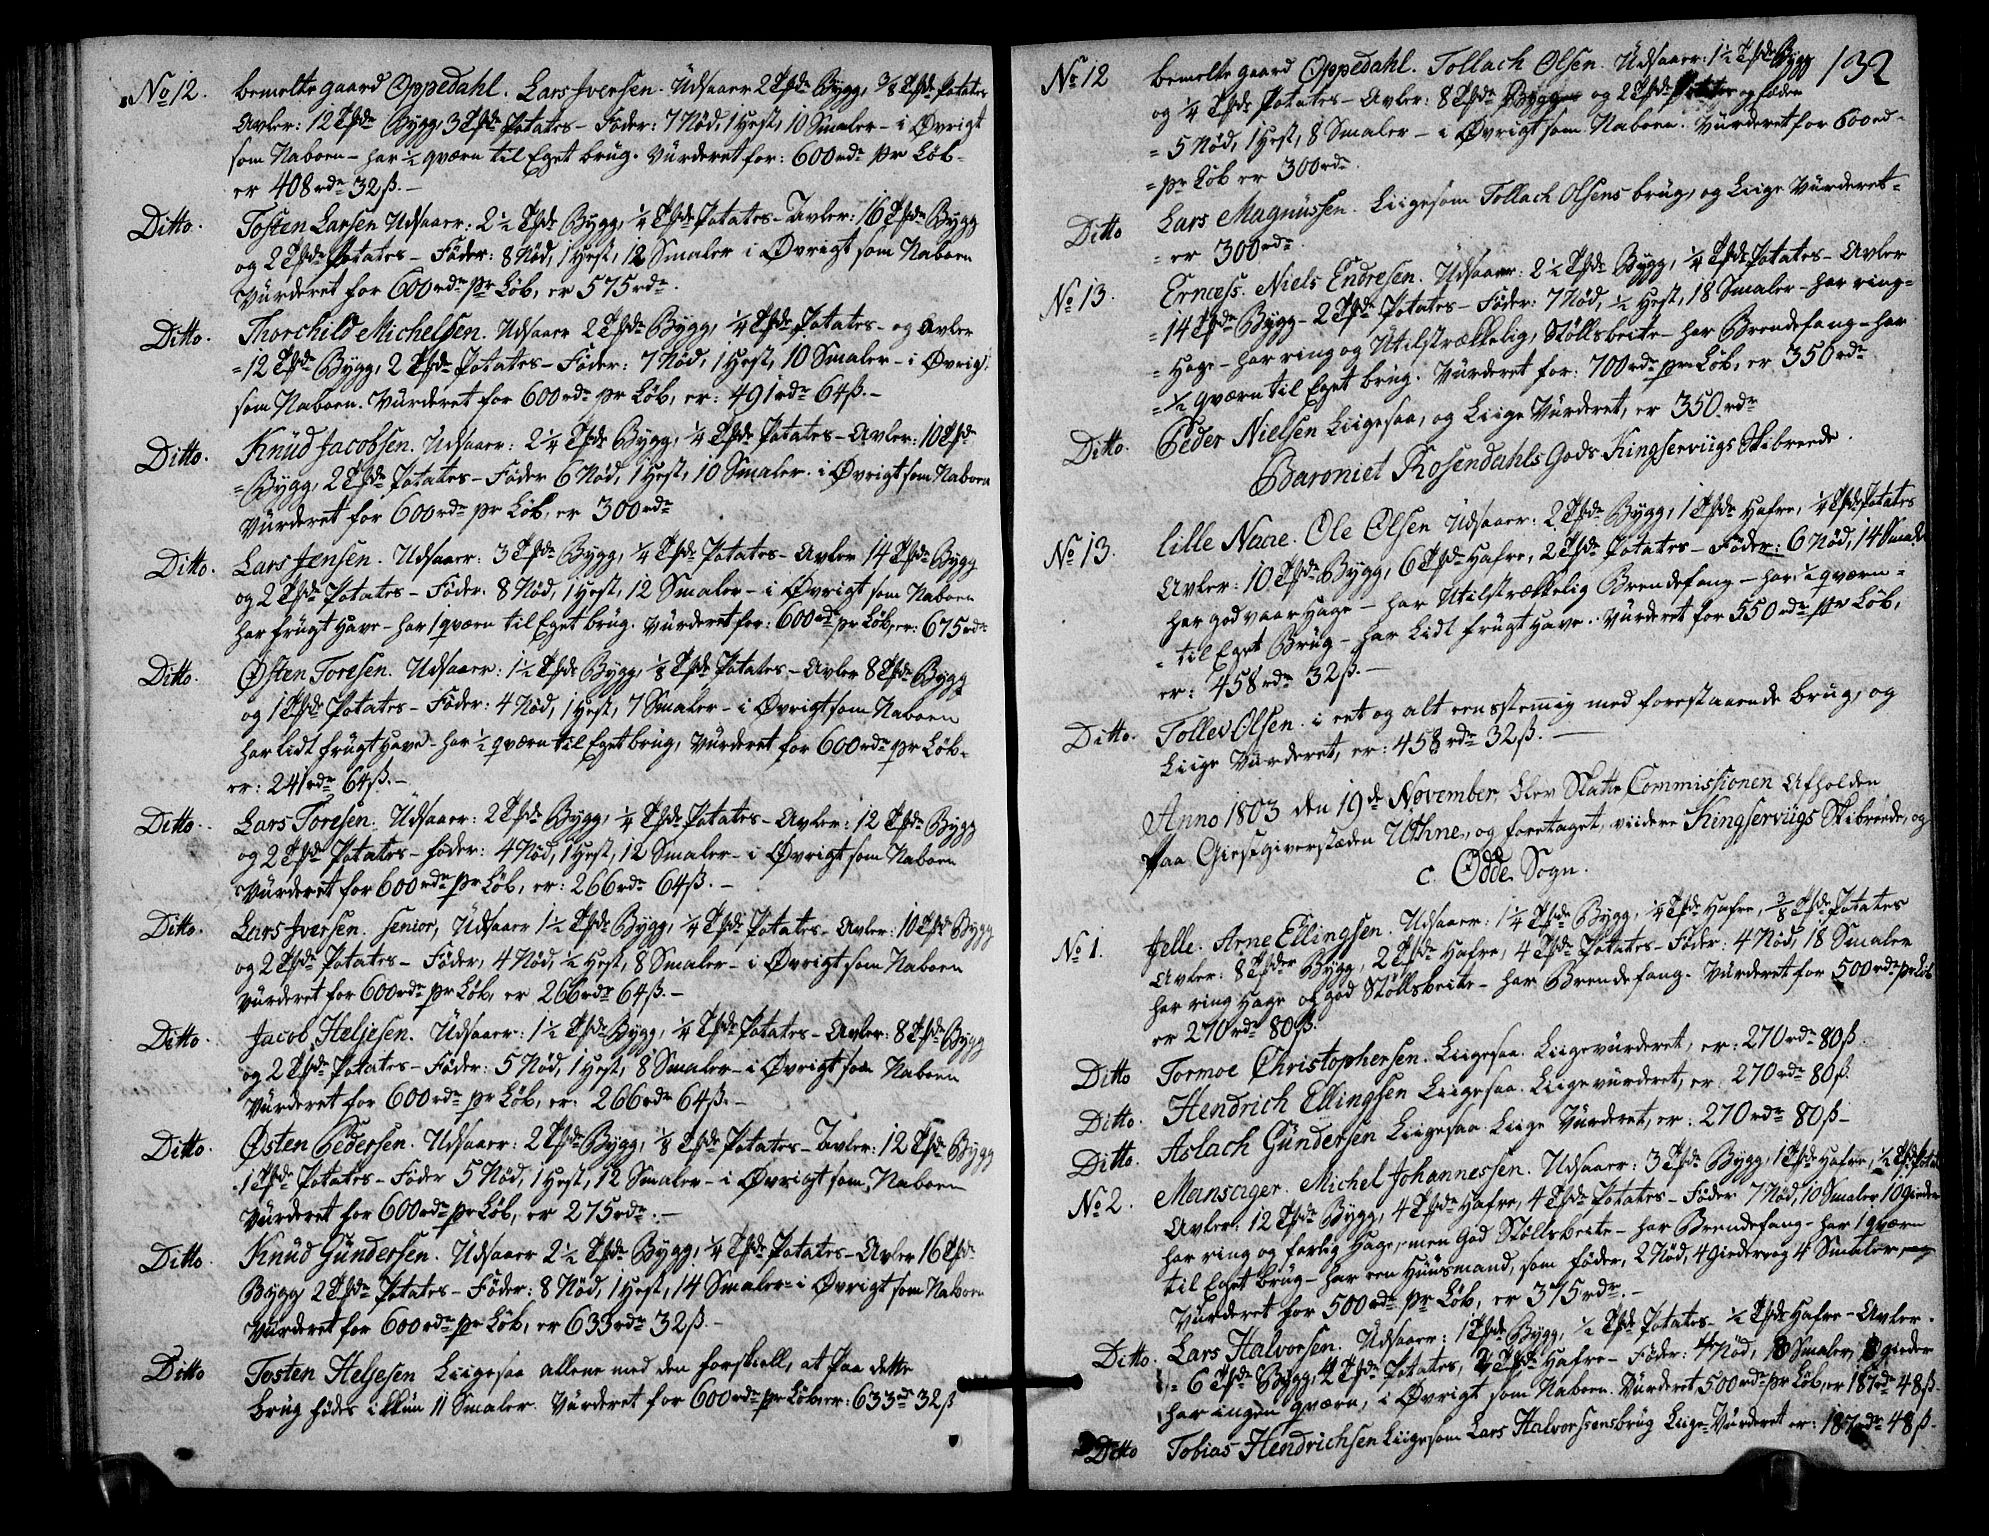 No 12. bemelte gaard Oppedahl. Lars Iversen. Udsaaer 2 Tønde Bygg, 3/8 Tønde Potates
Avler: 12 Tønde Bygg, 3 Tønde Potates – Føder: 7 Nød, 1 Hest, 10 Smaler – i Øvrigt
som Naboen – har ½ qværn til Eget brug. Vurderet for: 600 rdr pr Løb –
er 408 rdr 32 ß. –
Ditto. Tosten Larsen Udsaaer: 2 ½ Tønde Bygg, ¼ Tønde Potates – Avler: 16 Tønde Bygg
og 2 Tønde Potates – Føder: 8 Nød, 1 Hest, 12 Smaler i Øvrigt som Naboen
Vurderet for 600 rdr pr Løb, er 575 rdr.
Ditto. Thorchild Michelsen. Udsaaer 2 Tønde Bygg, ¼ Tønde Potates – og Avler
= 12 Tønde Bygg, 2 Tønde Potates – Føder: 7 Nød, 1 Hest, 10 Smaler – i Øvrigt
som Naboen. Vurderet for 600 rdr pr Løb, er: 491 rdr 64 ß. –
Ditto. Knud Jacobsen. Udsaaer: 2 ¼ Tønde Bygg, ¼ Tønde Potates – Avler: 10 Tønde
= Bygg, 2 Tønde Potates – Føder 6 Nød, 1 Hest, 10 Smaler. i Øvrigt som Naboen
Vurderet for 600 rdr pr Løb, er 300 rdr
Ditto. Lars Jensen. Udsaaer: 3 Tønde Bygg, ¼ Tønde Potates – Avler 14 Tønde Bygg
og 2 Tønde Potates – Føder: 8 Nød, 1 Hest, 12 Smaler – i Øvrigt som Naboen
har frugt Have – har 1 qværn til Eget brug. Vurderet for: 600 rdr pr Løb, er: 675 rdr
Ditto. Østen Toresen. Udsaaer: 1 ½ Tønde Bygg, ⅛ Tønde Potates – Avler 8 Tønde Bygg
og 1 Tønde Potates – Føder: 4 Nød, 1 Hest, 7 Smaler – i Øvrigt som Naboen
har lidt frugt Have – har ½ qværn til Eget brug, Vurderet for 600 rdr pr Løb –
er: 241 rdr 64 ß. –
Ditto. Lars Toresen. Udsaaer: 2 Tønde Bygg, ¼ Tønde Potates – Avler: 12 Tønde Bygg
og 2 Tønde Potates – føder: 4 Nød, 1 Hest, 12 Smaler – i Øvrigt som Naboen
Vurderet for 600 rdr pr Løb, er: 266 rdr 64 ß. –
Ditto. Lars Iversen. senior, Udsaaer 1 ½ Tønde Bygg, ¼ Tønde Potates – Avler: 10 Tønde Bygg
og 2 Tønde Potates – Føder, 4 Nød, ½ Hest, 8 Smaler – i Øvrigt som Naboen
Vurderet for 600 rdr pr Løb, er 266 rdr 64 ß. –
Ditto. Jacob Heljesen. Udsaaer: 1 ½ Tønde Bygg, ¼ Tønde Potates – Avler: 8 Tønde Bygg
og 2 Tønde Potates – Føder: 5 Nød, 1 Hest, 8 Smaler – i Øvrigt som Naboen
Vurderet for 600 rdr pr Løb, er: 266 rdr 64 ß. –
Ditto. Østen Pedersen. Udsaaer: 2 Tønde Bygg, ⅛ Tønde Potates – Avler: 12 Tønde Bygg
1 Tønde Potates – Føder 5 Nød, 1 Hest, 12 Smaler – i Øvrigt som Naboen
Vurderet for 600 rdr pr Løb, er 275 rdr. –
Ditto. Knud Gundersen. Udsaaer 2 ½ Tønde Bygg, ¼ Tønde Potates – Avler 16 Tønde
Bygg 2 Tønde Potates – Føder: 8 Nød, 1 Hest, 14 Smaler – i Øvrigt som Naboen
Vurderet for 600 rdr pr Løb, er 633 rdr 32 ß –
Ditto Tosten Heljesen Liigesaa allene med den forskiell, at paa dette
brug fødes ikkun 11 Smaler. Vurderet for 600 rdr pr Løb er: 633 rdr 32 ß
132
No 12 bemelte gaard Oppedahl. Tollach Olsen. Udsaaer: 1 ½ Tønde Bygg
og ¼ Tønde Potates – Avler: 8 Tønde Bygg og 2 Tønde Potates og føder
= 5 Nød, 1 Hest, 8 Smaler – i Øvrigt som Naboen. Vurderet for 600 rd –
= pr Løb er 300 rdr.
Ditto Lars Magnussen. Liigesom Tollach Olsens brug, og Liige Vurderet =
= er 300 rdr.
No 13. Ernæss. Niels Endresen. Udsaaer: 2 ¼ Tønde Bygg, ¼ Tønde Potates – Avler
= 14 Tønde Bygg – 2 Tønde Potates – Føder: 7 Nød, ½ Hest, 18 Smaler – har ring =
= Hage – har ring og Utilstrækkelig, Støllsbeite – har Brendefang – har
= ½ qværn til Eget brug. Vurderet for: 700 rdr pr Løb, er 350 rdr
Ditto. Peder Nielsen Liigesaa, og Liige Vurderet, er 350 rdr
Baroniet Rosendahls Gods Kingserviigs Skibreede.
No 13. lille Naae. Ole Olsen Udsaaer: 2 Tønde Bygg, 1 Tønde Hafre, ¼ Tønde Potates
Avler: 10 Tønde Bygg, 6 Tønde Hafre, 2 Tønde Potates – Føder: 6 Nød, 14 Smaler
har god vaar Hage – har Utilstrækkelig Brendefang – har ½ qværn =
= til Eget Brug – har Lidt frugt Have. Vurderet for 550 rdr pr Løb,
er: 458 rdr 32 ß. –
Ditto. Tollev Olsen. i eet og alt eensstemig med forestaaende brug, og
Liige Vurderet, er: 458 rdr 32 ß. –
Anno 1803 den 19de November, blev Skatte Commissionen Afholden
paa Giestgiverstæden Uthne, og foretaget, viidere Kingserviigs Skibreede, og
c. Odde Sogn.
No 1. Jelle. Arne Ellingsen. Udsaaer: 1 ¼ Tønde Bygg, ¼ Tønde Hafre, 3/8 Tønde Potates
Avler: 8 Tønder Bygg, 2 Tønde Hafre, 4 Tønde Potates – Føder: 4 Nød, 18 Smaler
har ring Hage og god Støllsbeite – har Brendefang. Vurderet for 500 rdr pr Løb
er 270 rdr 80 ß.
Ditto Tormoe Christophersen. Liigesaa. Liige vurderet, er: 270 rdr 80 ß.
Ditto. Hendrich Ellingsen Liigesaa. Liige vurderet, er: 270 rdr 80 ß.
Ditto. Aslach Gundersen Liigesaa. Liige Vurderet, er: 270 rdr 80 ß –
No 2. Mansager. Michel Johannessen. Udsaaer: 3 Tønde Bygg, 1 Tønde Hafre, ½ Tønde Potat
Avler: 12 Tønde Bygg, 4 Tønde Hafre, 4 Tønde Potates – Føder 7 Nød, 10 Smaler 10 gieder
har ring og farlig Hage, men God Støllsbeite – har Brendefang – har 1 qværn
til Eget brug – har een Huusmand, som føder, 2 Nød, 4 Gieder og 4 Smaler
Vurderet for 500 rdr pr Løb, er 375 rdr. –
Ditto. Lars Halvorsen. Udsaaer: 1 Tønde Bygg, ½ Tønde Potates – ½ Tønde Hafre – Avler.
= 6 Tønde Bygg, 4 Tønde Potates, 2 Tønde Hafre – Føder: 4 Nød, 8 Smaler, 8 gieder
har ingen qværn, i Øvrigt som Naboen. Vurderet 500 rdr pr Løb, er 187 rdr 48 ß.
Ditto Tobias Hendrichsen Liigesom Lars Halvorssens brug Liige Vurderet er: 187 rdr 48 ß.